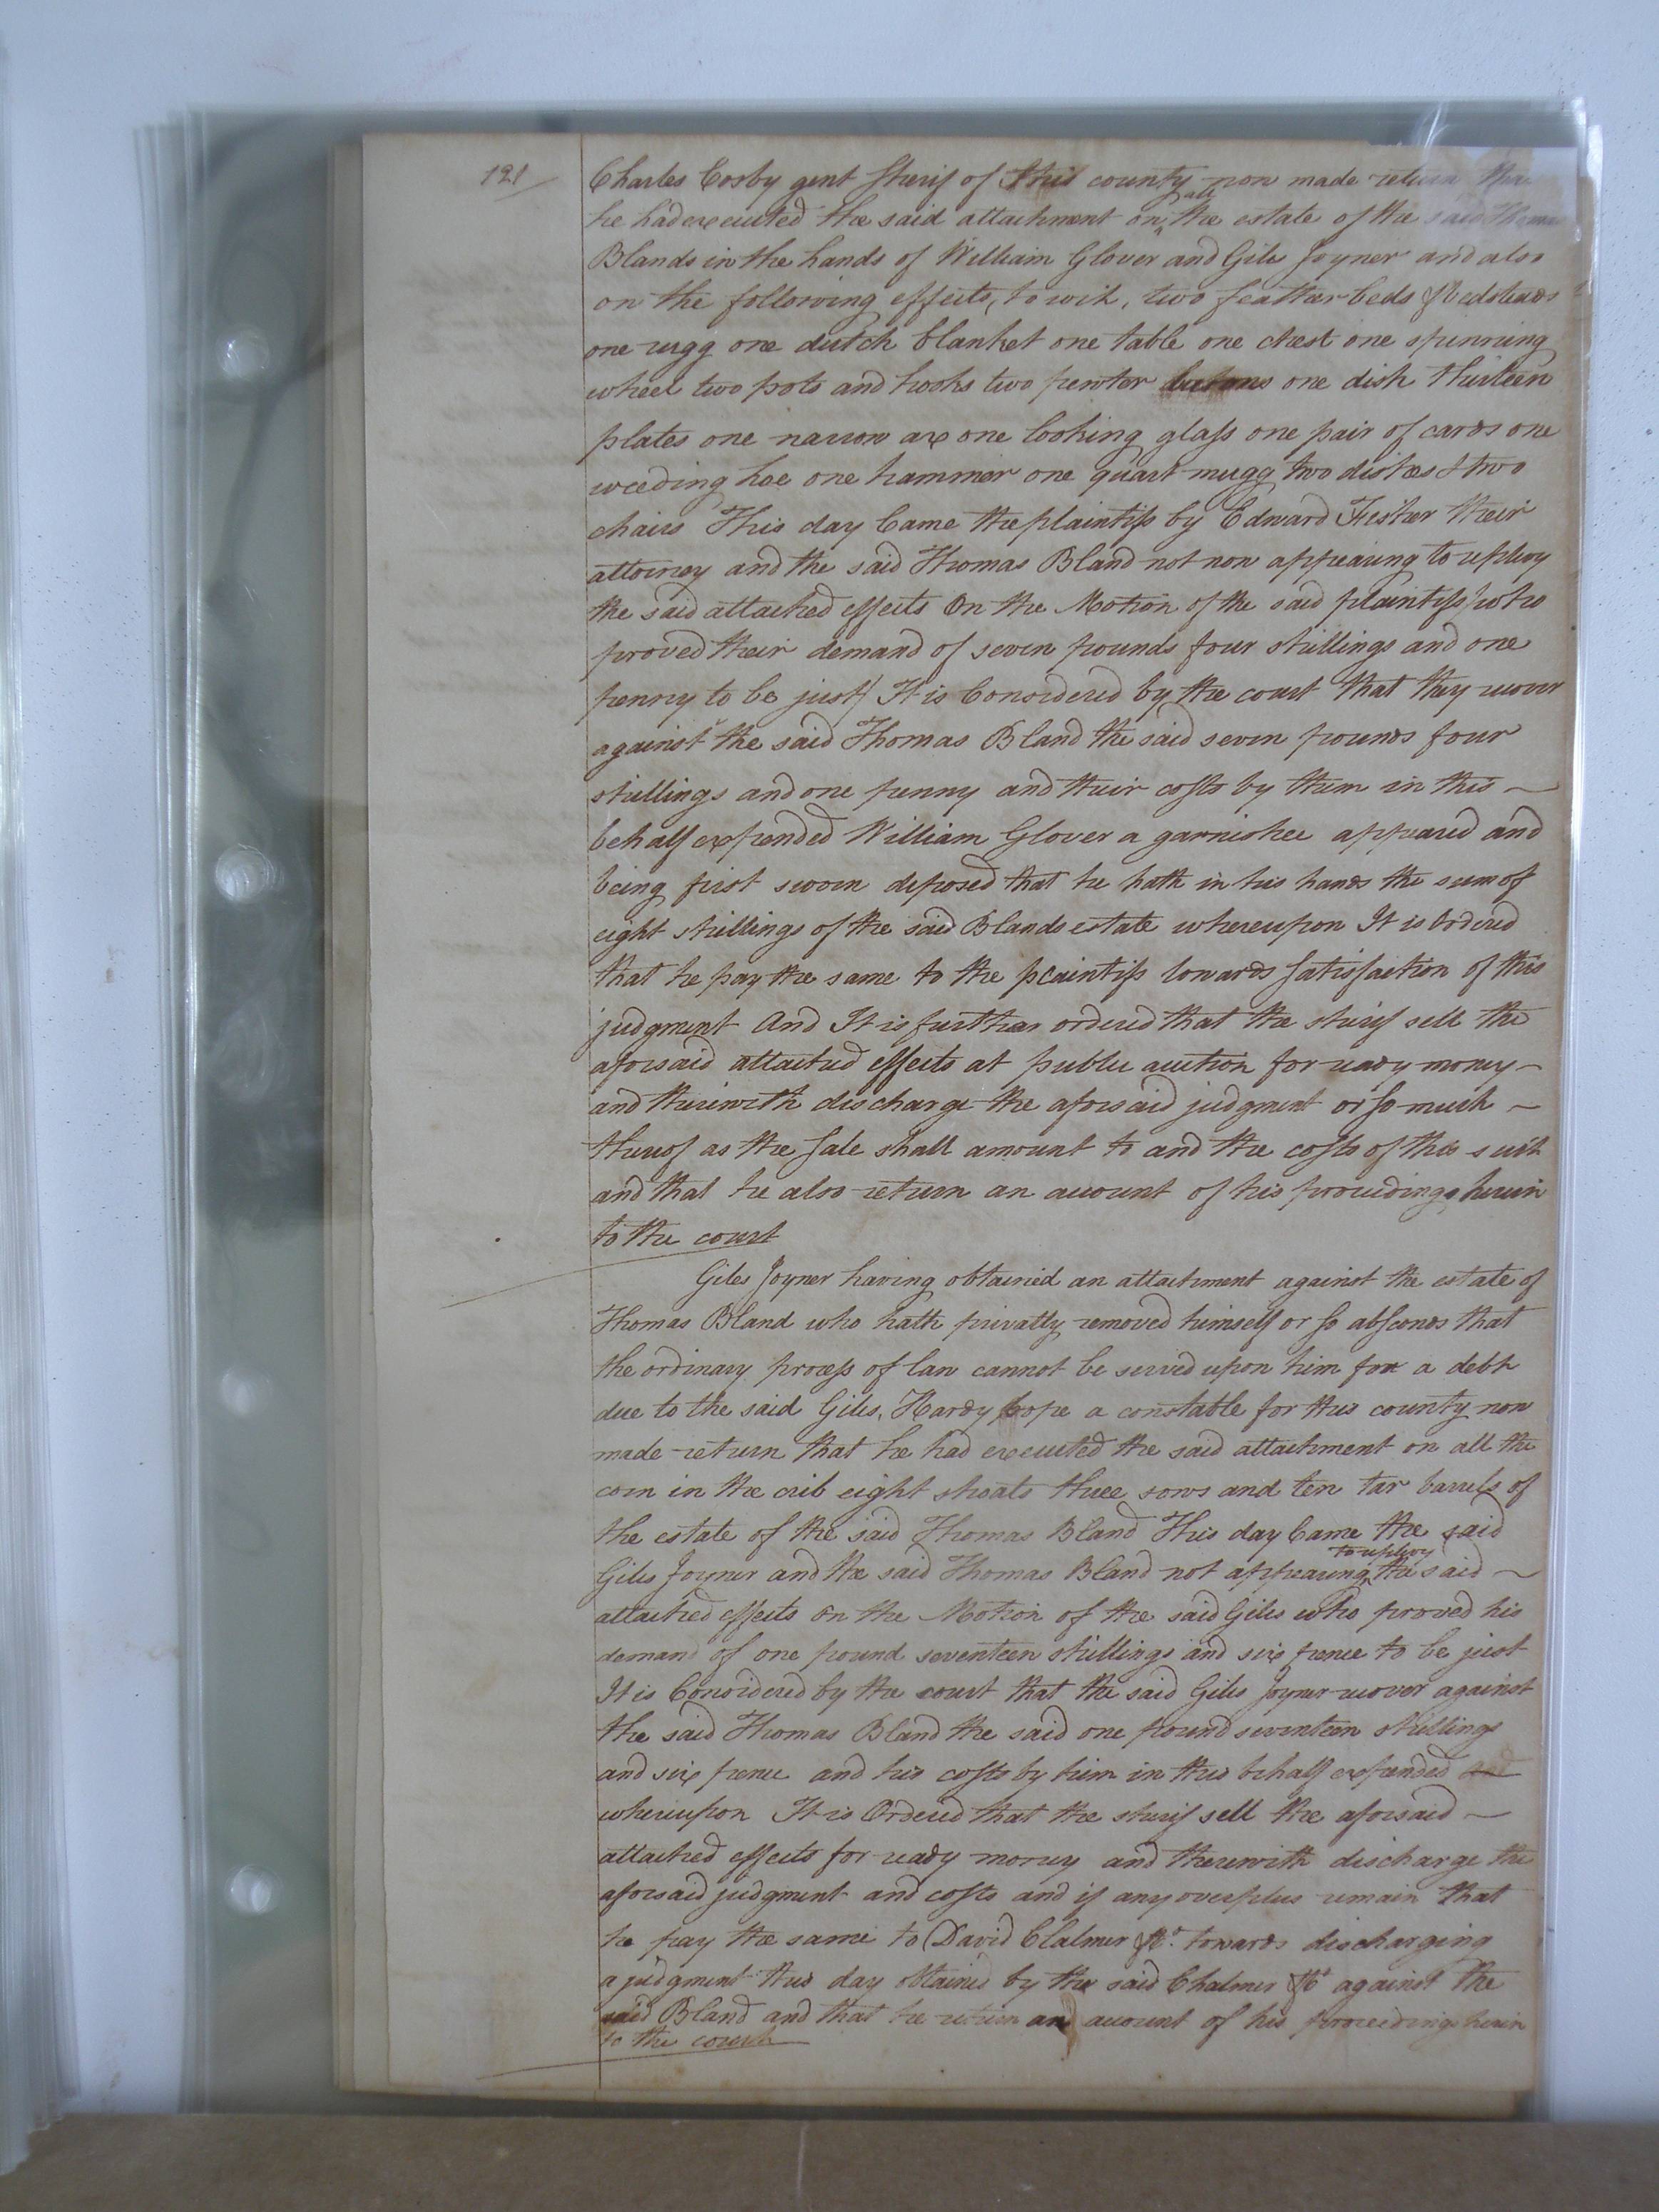 121
Charles Cosby gent Sherif of this county now made return tha
he had executed the said attachment on all the estate of the said Thomas
Blands in the hands of William Glover and Giles Joyner and also
on the following effects, to wit, two feather beds & bedsteads
one rugg one dutch blanket one table one chest one spinning
wheel two pots and hooks two pewter basons one dish thirteen
plates one narrow axe one looking glass one pair of cards one
weeding hoe one hammer one quart mugg two dishes & two
chairs This day Came the plaintifs by Edward Fisher their
attorney and the said Thomas Bland not now appearing to replevy
the said attached effects On the Motion of the said plaintifs who
proved their demand of seven pounds four shillings and one
penny to be just It is Considered by the court that they recover
against the said Thomas Bland the said seven pounds four
shillings and one penny and their costs by them in this
behalf expended William Glover a garnishee appeared and
being first sworn deposed that he hath in his hands the sum of
eight shillings of the said Blands estate whereupon It is Ordered
that he pay the same to the plaintifs towards satisfaction of this
judgment And It is further ordered that the sherif sell the
aforsaid attached effects at public auction for ready money
and therewith discharge the aforsaid judgment or so much
thereof as the sale shall amount to and the costs of this suit
and that he also return an account of his proceedings herein
to the court
Giles Joyner having obtained an attachment against the estate of
Thomas Bland who hath privatly removed himself or so absconds that
the ordinary process of law cannot be served upon him for a debt
due to the said Giles, Hardy Cope a constable for this county now
made return that he had executed the said attachment on all the
corn in the crib eight shoats three sows and ten tar barrels of
the estate of the said Thomas Bland This day Came the said
Giles Joyner and the said Thomas Bland not appearing to replevy the said
attached effects On the Motion of the said Giles who proved his
demand of one pound seventeen shillings and six pence to be just
It is Considered by the court that the said Giles Joyner recover against
the said Thomas Bland the said one pound seventeen shillings
and six pence and his costs by him in this behalf expended and
whereupon It is Ordered that the sherif sell the aforsaid
attached effects for ready money and therewith discharge the
aforsaid judgment and costs and if any overplus remain that
he pay the same to David Clalmer &Co. towards discharging
a judgment this day obtained by the said Chalmer &Co against the
said Bland and that he return an account of his proceedings herein
to the court